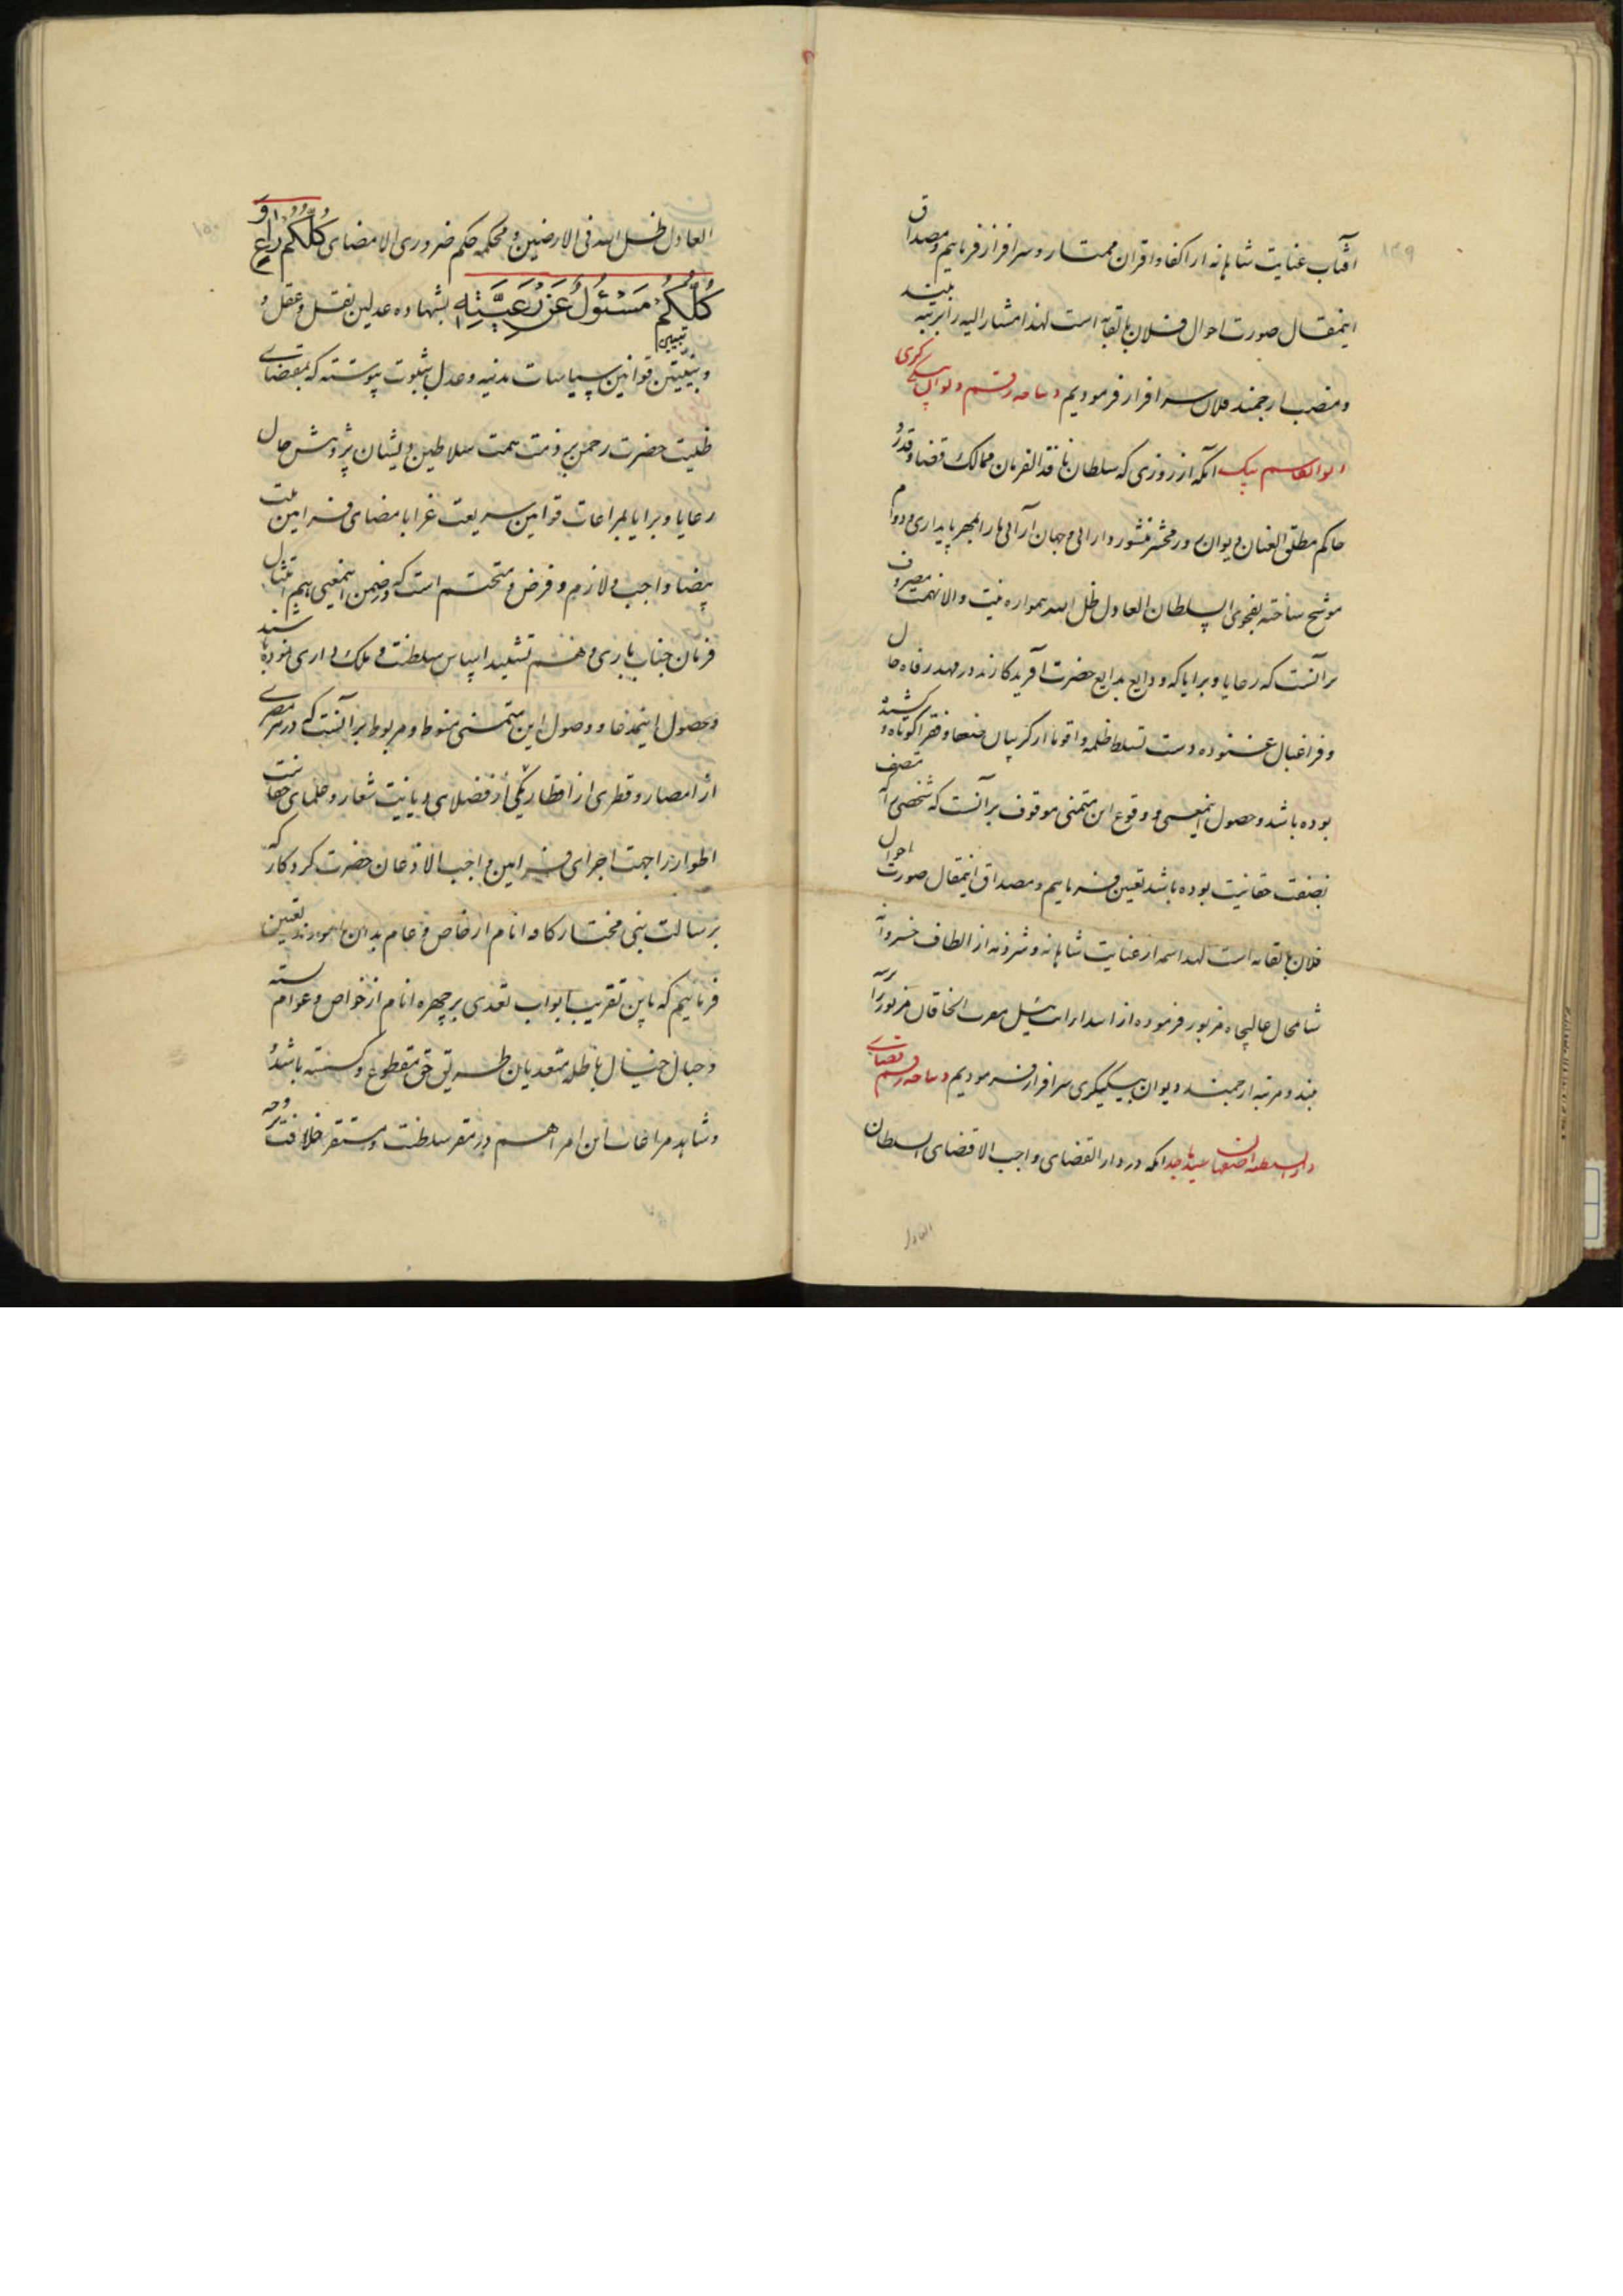 ۱۳۹
آفتاب عنایت شاهانه از اکفا و اقران ممتاز و سرافراز فرماییم و مصداق
اینمقال صورت احوال فلان باتقابه است لهذا مشار الیه را بمرتبه بلند
و منصب ارجمند فلان سرافراز فرمودیم دیباجه رقم دیوان بیگی کری
ابوالقاسم بیک آنکه از روزی که سلطان نافذ الفرمان ممالک قضا و قدر و
حاکم مطلق العنان دیوان در محشر منشور دارائی و جهان آرائی ما را بمهر پایداری و دوام
موشح ساخته بفحوی السلطان العادل ظل الله همواره نیت والا نهمت مصروف
بر آنست که رعایا و برایا که ودایع بدایع حضرت آفریدگارند در مهد رفاه حال
و فراغبال غنوده دست تسلط ظلمه و اقویا از گریبان ضعفا و فقرا کوتاه و کشیده
بوده باشد و حصول اینمعنی و وقوع این متمنی موقوف بر آنست که شخصی را که متصف
بصفت حقانیت بوده باشد تعیین فرماییم و مصداق اینمقال صورت احوال
فلان باتقابه است لهذا شمه از عنایت شاهانه و شرذمه از الطاف خسروانه
شامحال عالیجاه مزبور فرموده از ابتدای ایت ئیل مقرب الخاقان مزبور را بمرتبه
بلند و مرتبه ارجمند دیوان بیگیگری سرافراز فرمودیم دیباجه رقم قضای
دار السلطنه اصفهان آنکه در دار القضای واجب الاقتضای السلطان
العادل
العادل ظل الله فی الارضین و محکمه حکم ضروری الامضای کُلُّکُم راعٍ وَ
کُلُّکُم مَسْئُولٌ عَنْ رَعِیَّتِهِ بشهاده عدلین نقل و عقل و
و تبیین قوانین سیاسات مدنیه و عدل بثبوت پیوسته که بمقتضای
ظلیت حضرت رحمن بر ذمت همت سلاطین ذیشان پژوهش حال
رعایا و برایا بمراعات قوانین شریعت غرا بامضای فرامین ملت
بیضا واجب و لازم و فرض و متحتم است که در ضمن اینمعنی هم امتثال
فرمان جناب باری و هم تشیید اساس سلطنت و ملک داری نموده باشند
و حصول اینمدعا و وصول این متمنی منوط و مربوط بر آنست که در هر مصری
از امصار و قطری از اقطار یکی از فضلای دیانت شعار و علمای حقانیت
اطوار را جهت اجرای فرامین واجب الاذعان حضرت کردگار که
برسالت نبی مختار کافه انام از خاص و عام بدان مامورند تعیین
فرماییم که باین تقریب ابواب تعدی بر چهره انام از خواص و عوام بسته
و حبال خیال باطله متعدیان طریق حق مقطوع و گسسته باشد
و شاهد مراعات این امر اهم در مقر سلطنت و مستقر خلافت